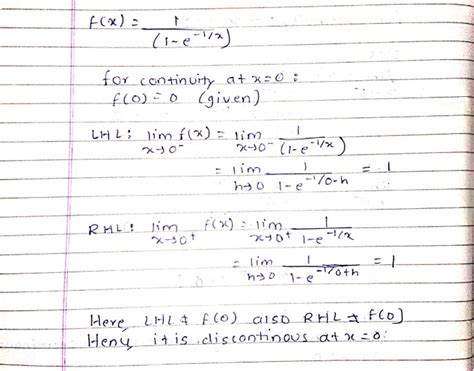 f(x) = 1/(1-e^-1/x)
for continuity at x=0 :
f(0) = 0 (given)
LHL: lim x→0⁻ f(x) = lim x→0⁻ 1/(1-e^-1/x)
= lim h→0 1/1-e^-1/0-h = 1
RHL: lim x→0⁺ f(x) = lim x→0⁺ 1/1-e^-1/x
= lim h→0 1/1-e^-1/0+h = 1
Here LHL ≠ f(0) also RHL ≠ f(0)
Henu it is discontinous at x=0.